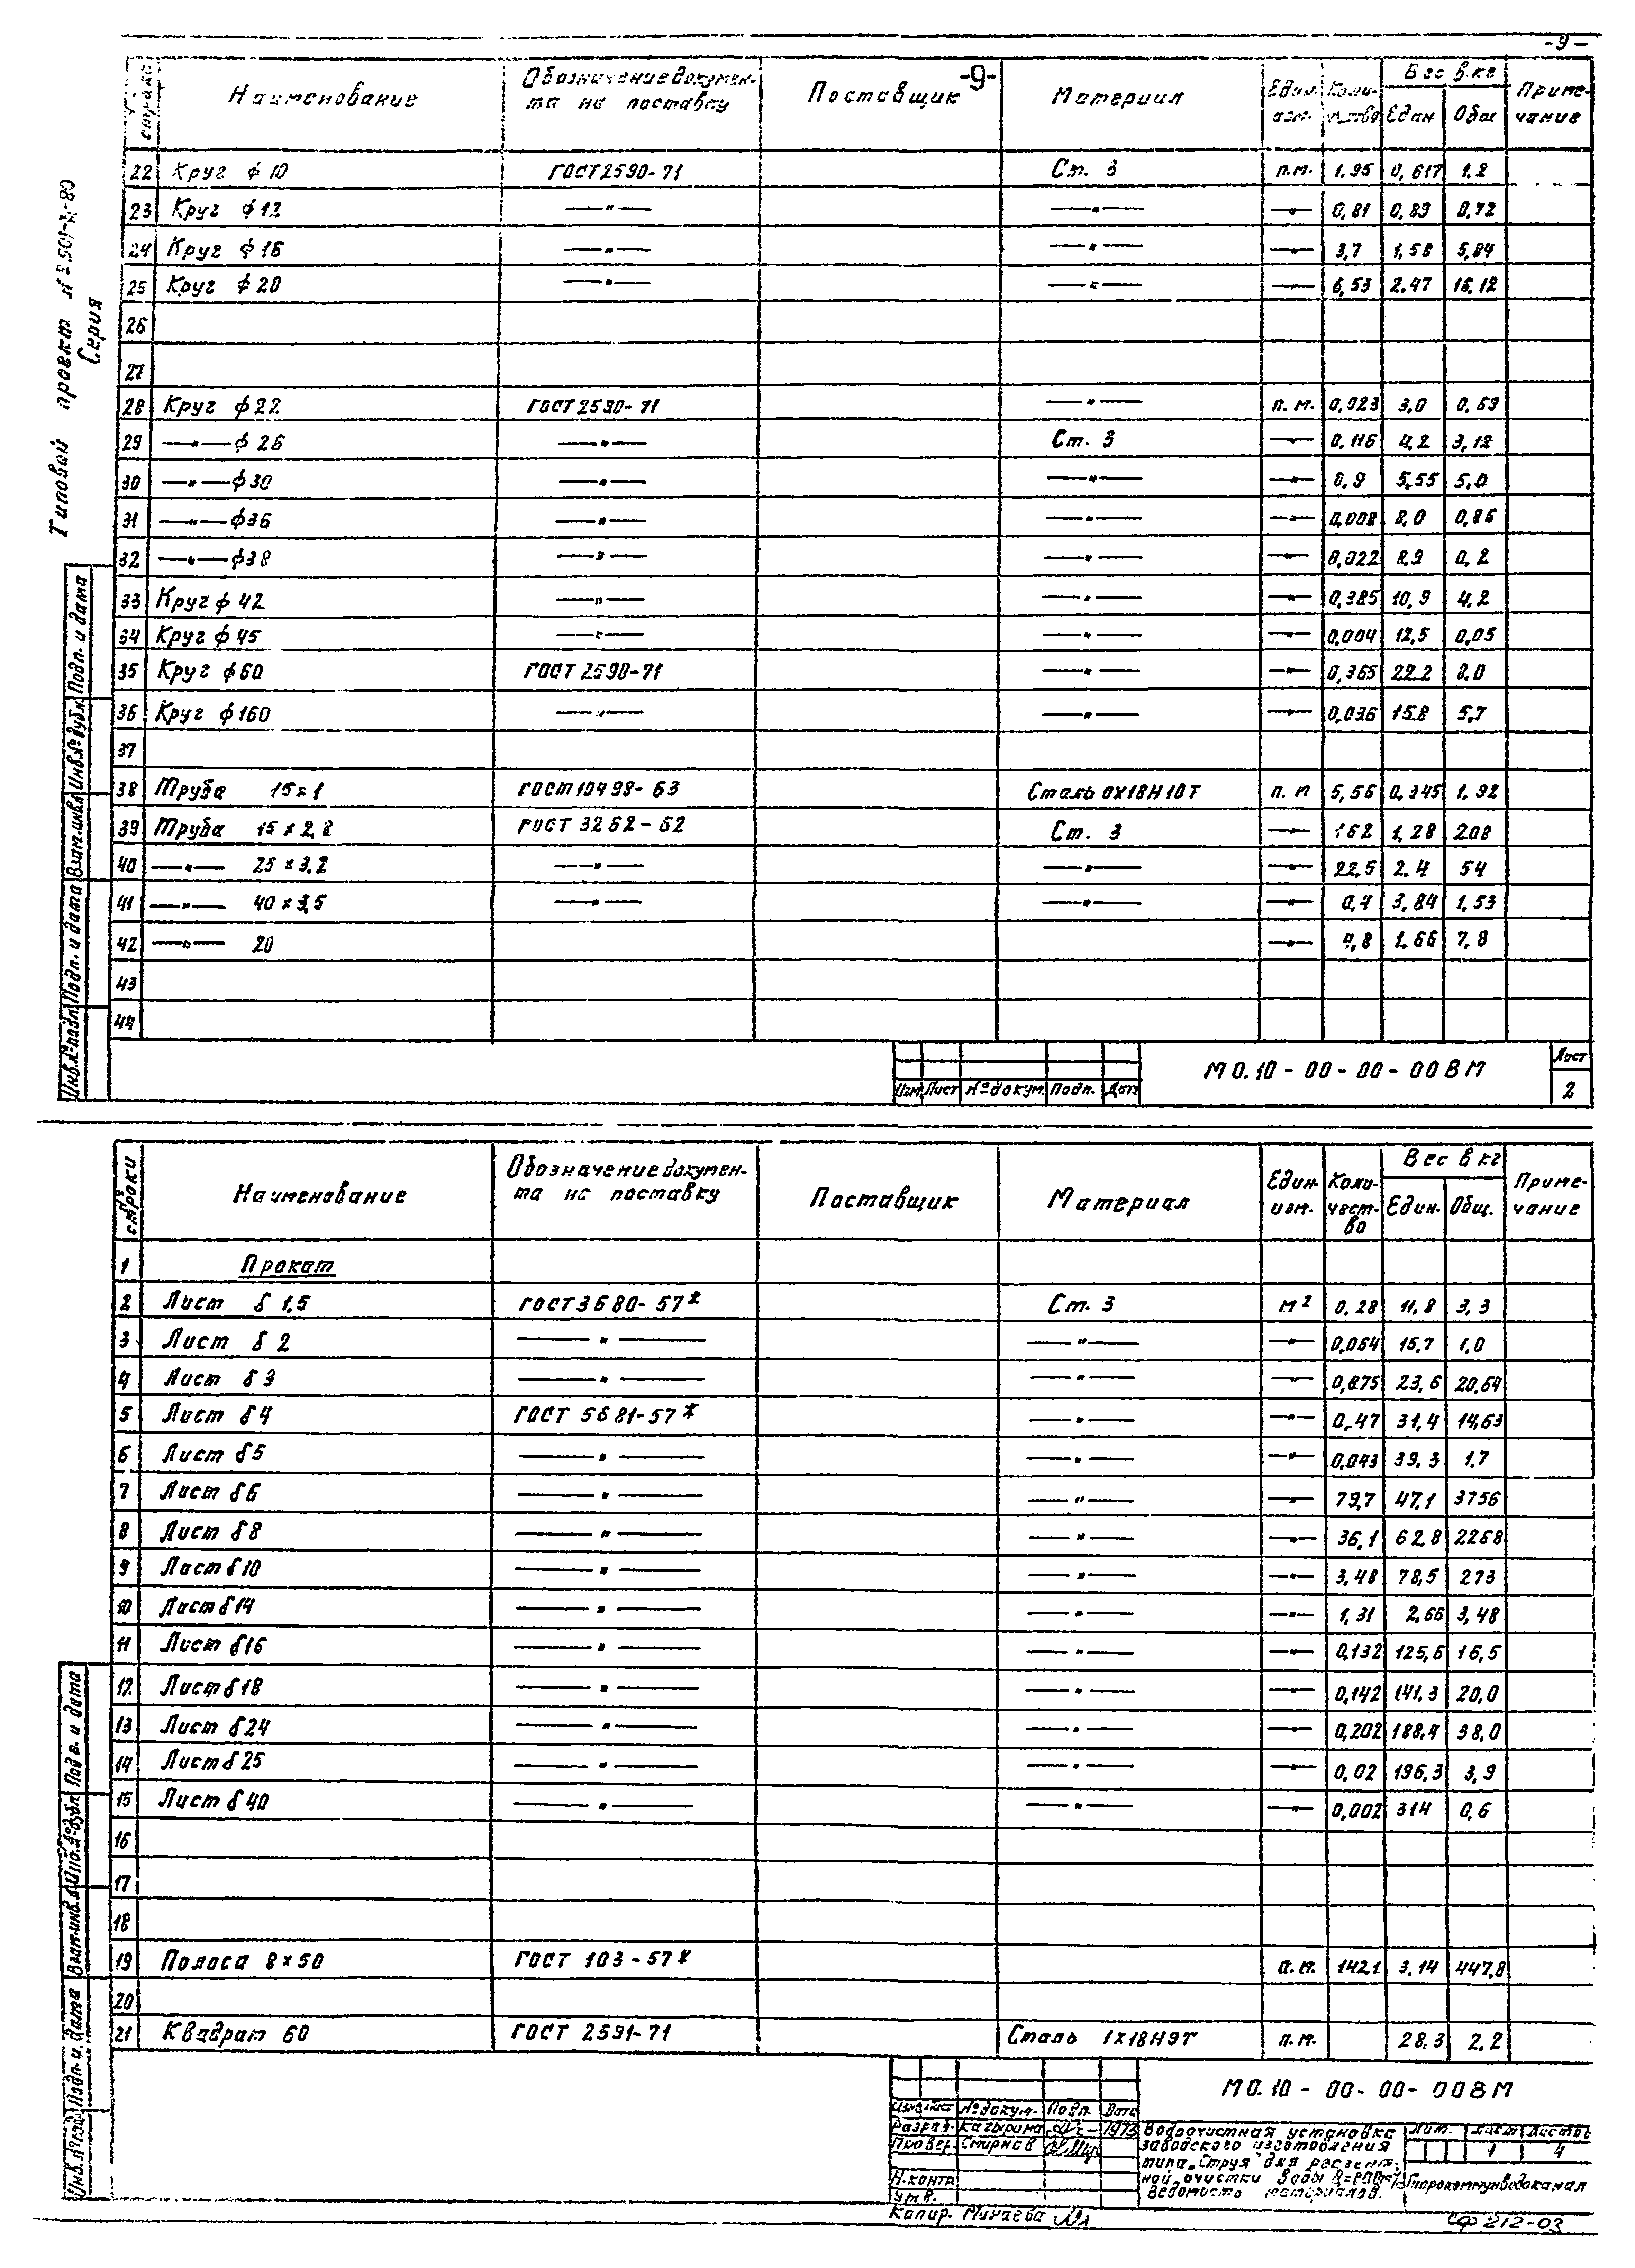 -9-
-9-
№ строки | Наименование | Обозначение докумен-та на поставку | Поставщик | Материал | Един. изм. | Коли-чество | Вес в кг | Един. | Общ | Приме-чание
22 Круг ϕ 10 ГОСТ 2590-71 Ст. 3 п.м. 1.95 0,617 1,2
23 Круг ϕ 12 —"— —"— —"— 0,81 0,89 0,72
24 Круг ϕ 16 —"— —"— —"— 3,7 1,58 5,84
25 Круг ϕ 20 —"— —"— —"— 6,53 2.47 16,12
26
27
28 Круг ϕ 22 ГОСТ 2590-71 —"— п.м. 0,023 3,0 0,69
29 —"— ϕ 26 —"— Ст. 3 —"— 0,116 4,2 3,12
30 —"— ϕ 30 —"— —"— —"— 0,9 5,55 5,0
31 —"— ϕ 36 —"— —"— —"— 0,008 8,0 0,86
32 —"— ϕ 38 —"— —"— —"— 0,022 8,9 0,2
33 Круг ϕ 42 —"— —"— —"— 0,385 10,9 4,2
34 Круг ϕ 45 —"— —"— —"— 0,004 12,5 0,05
35 Круг ϕ 60 ГОСТ 2590-71 —"— —"— 0,365 22.2 8.0
36 Круг ϕ 160 —"— —"— —"— 0,036 158 5,7
37
38 Труба 15×1 ГОСТ 10498-63 Сталь 0Х18Н10Т п.м 5,56 0,345 1,92
39 Труба 15×2,8 ГОСТ 3262-62 Ст. 3 —"— 162 1,28 208
40 —"— 25×3,2 —"— —"— —"— 22,5 2.4 54
41 —"— 40×3,5 —"— —"— —"— 0,4 3,84 1,53
42 —"— 20 —"— 4,8 1,66 7,8
43
44
Изм. Лист № докум. Подп. Дата
МО.10-00-00-00ВМ
Лист
2
Типовой проект № 901-3-80
Серия
Инв.№ подл. Подп. и дата Взам.инв.№ Инв.№ дубл. Подп. и дата
№ строки | Наименование | Обозначение докумен-та на поставку | Поставщик | Материал | Един. изм. | Коли-чест-во | Вес в кг | Един. | Общ. | Приме-чание
1 Прокат
2 Лист δ 1,5 ГОСТ 3680-57* Ст. 3 м² 0,28 11,8 3,3
3 Лист δ 2 —"— —"— —"— 0,064 15,7 1,0
4 Лист δ 3 —"— —"— —"— 0,875 23,6 20,64
5 Лист δ 4 ГОСТ 5681-57* —"— —"— 0,47 31,4 14,63
6 Лист δ 5 —"— —"— —"— 0,043 39,3 1.7
7 Лист δ 6 —"— —"— —"— 79,7 47,1 3756
8 Лист δ 8 —"— —"— —"— 36,1 62,8 2268
9 Лист δ 10 —"— —"— —"— 3,48 78,5 273
10 Лист δ 14 —"— —"— —"— 1,31 2,66 3,48
11 Лист δ 16 —"— —"— —"— 0,132 125,6 16,5
12 Лист δ 18 —"— —"— —"— 0,142 141,3 20,0
13 Лист δ 24 —"— —"— —"— 0,202 188,4 38,0
14 Лист δ 25 —"— —"— —"— 0,02 196,3 3,9
15 Лист δ 40 —"— —"— —"— 0,002 314 0,6
16
17
18
19 Полоса 8×50 ГОСТ 103-57* п.м. 142,1 3,14 447,8
20
21 Квадрат 60 ГОСТ 2591-71 Сталь 1Х18Н9Т п.м. 28,3 2,2
МО.10-00-00-00ВМ
Изм Лист № докум. Подп. Дата
Разраб. Кагырина 1973
Провер. Смирнов
Н.контр.
Утв.
Водоочистная установка
заводского изготовления
типа „Струя" для реагент-
ной очистки воды
Ведомость материалов.
Лит. Лист Листов
1 4
Гипрокоммунводоканал
Копир. Минаева
СФ 212-03
Инв.№ подл. Подп. и дата Взам.инв.№ Инв.№ дубл. Подп. и дата